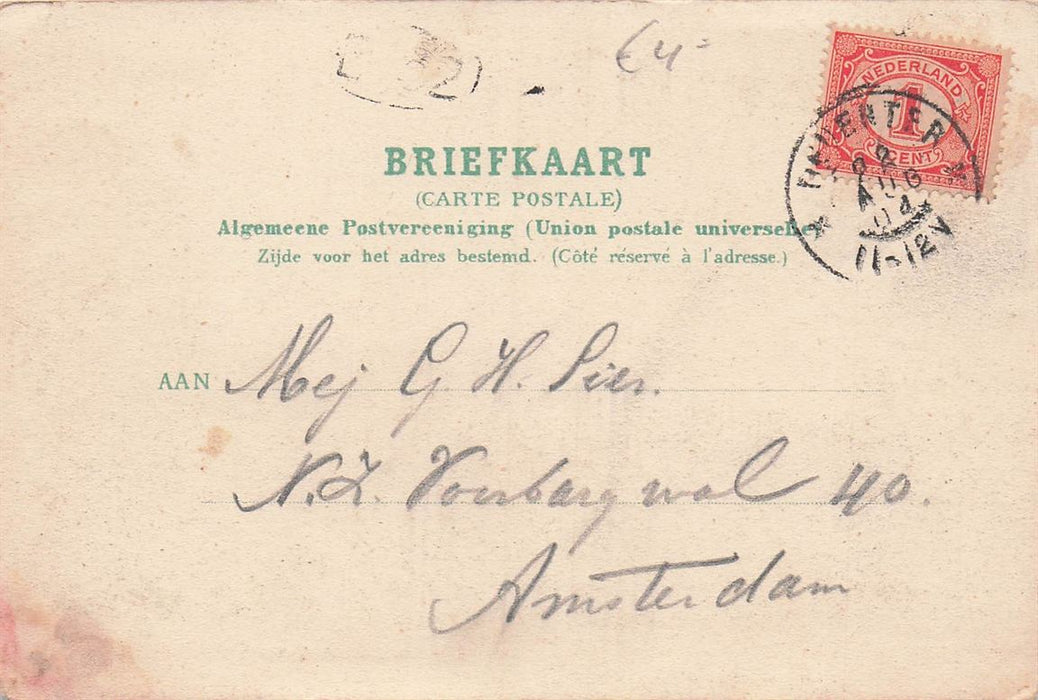 €4-
NEDERLAND
1
CENT
DEVENTER
AUG
04
11-12V
BRIEFKAART
(CARTE POSTALE)
Algemeene Postvereeniging (Union postale universelle)
Zijde voor het adres bestemd. (Côté réservé à l'adresse.)
AAN Mej G. H.
N.Z. Voorburgwal 40.
Amsterdam